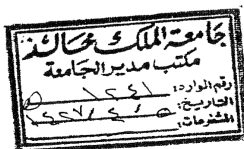 جامعة الملك خالد
مكتب مدير الجامعة
رقم الوارد: ١٢٤١
التاريخ: ١٤٢٧/٤/٥
المشفوعات: